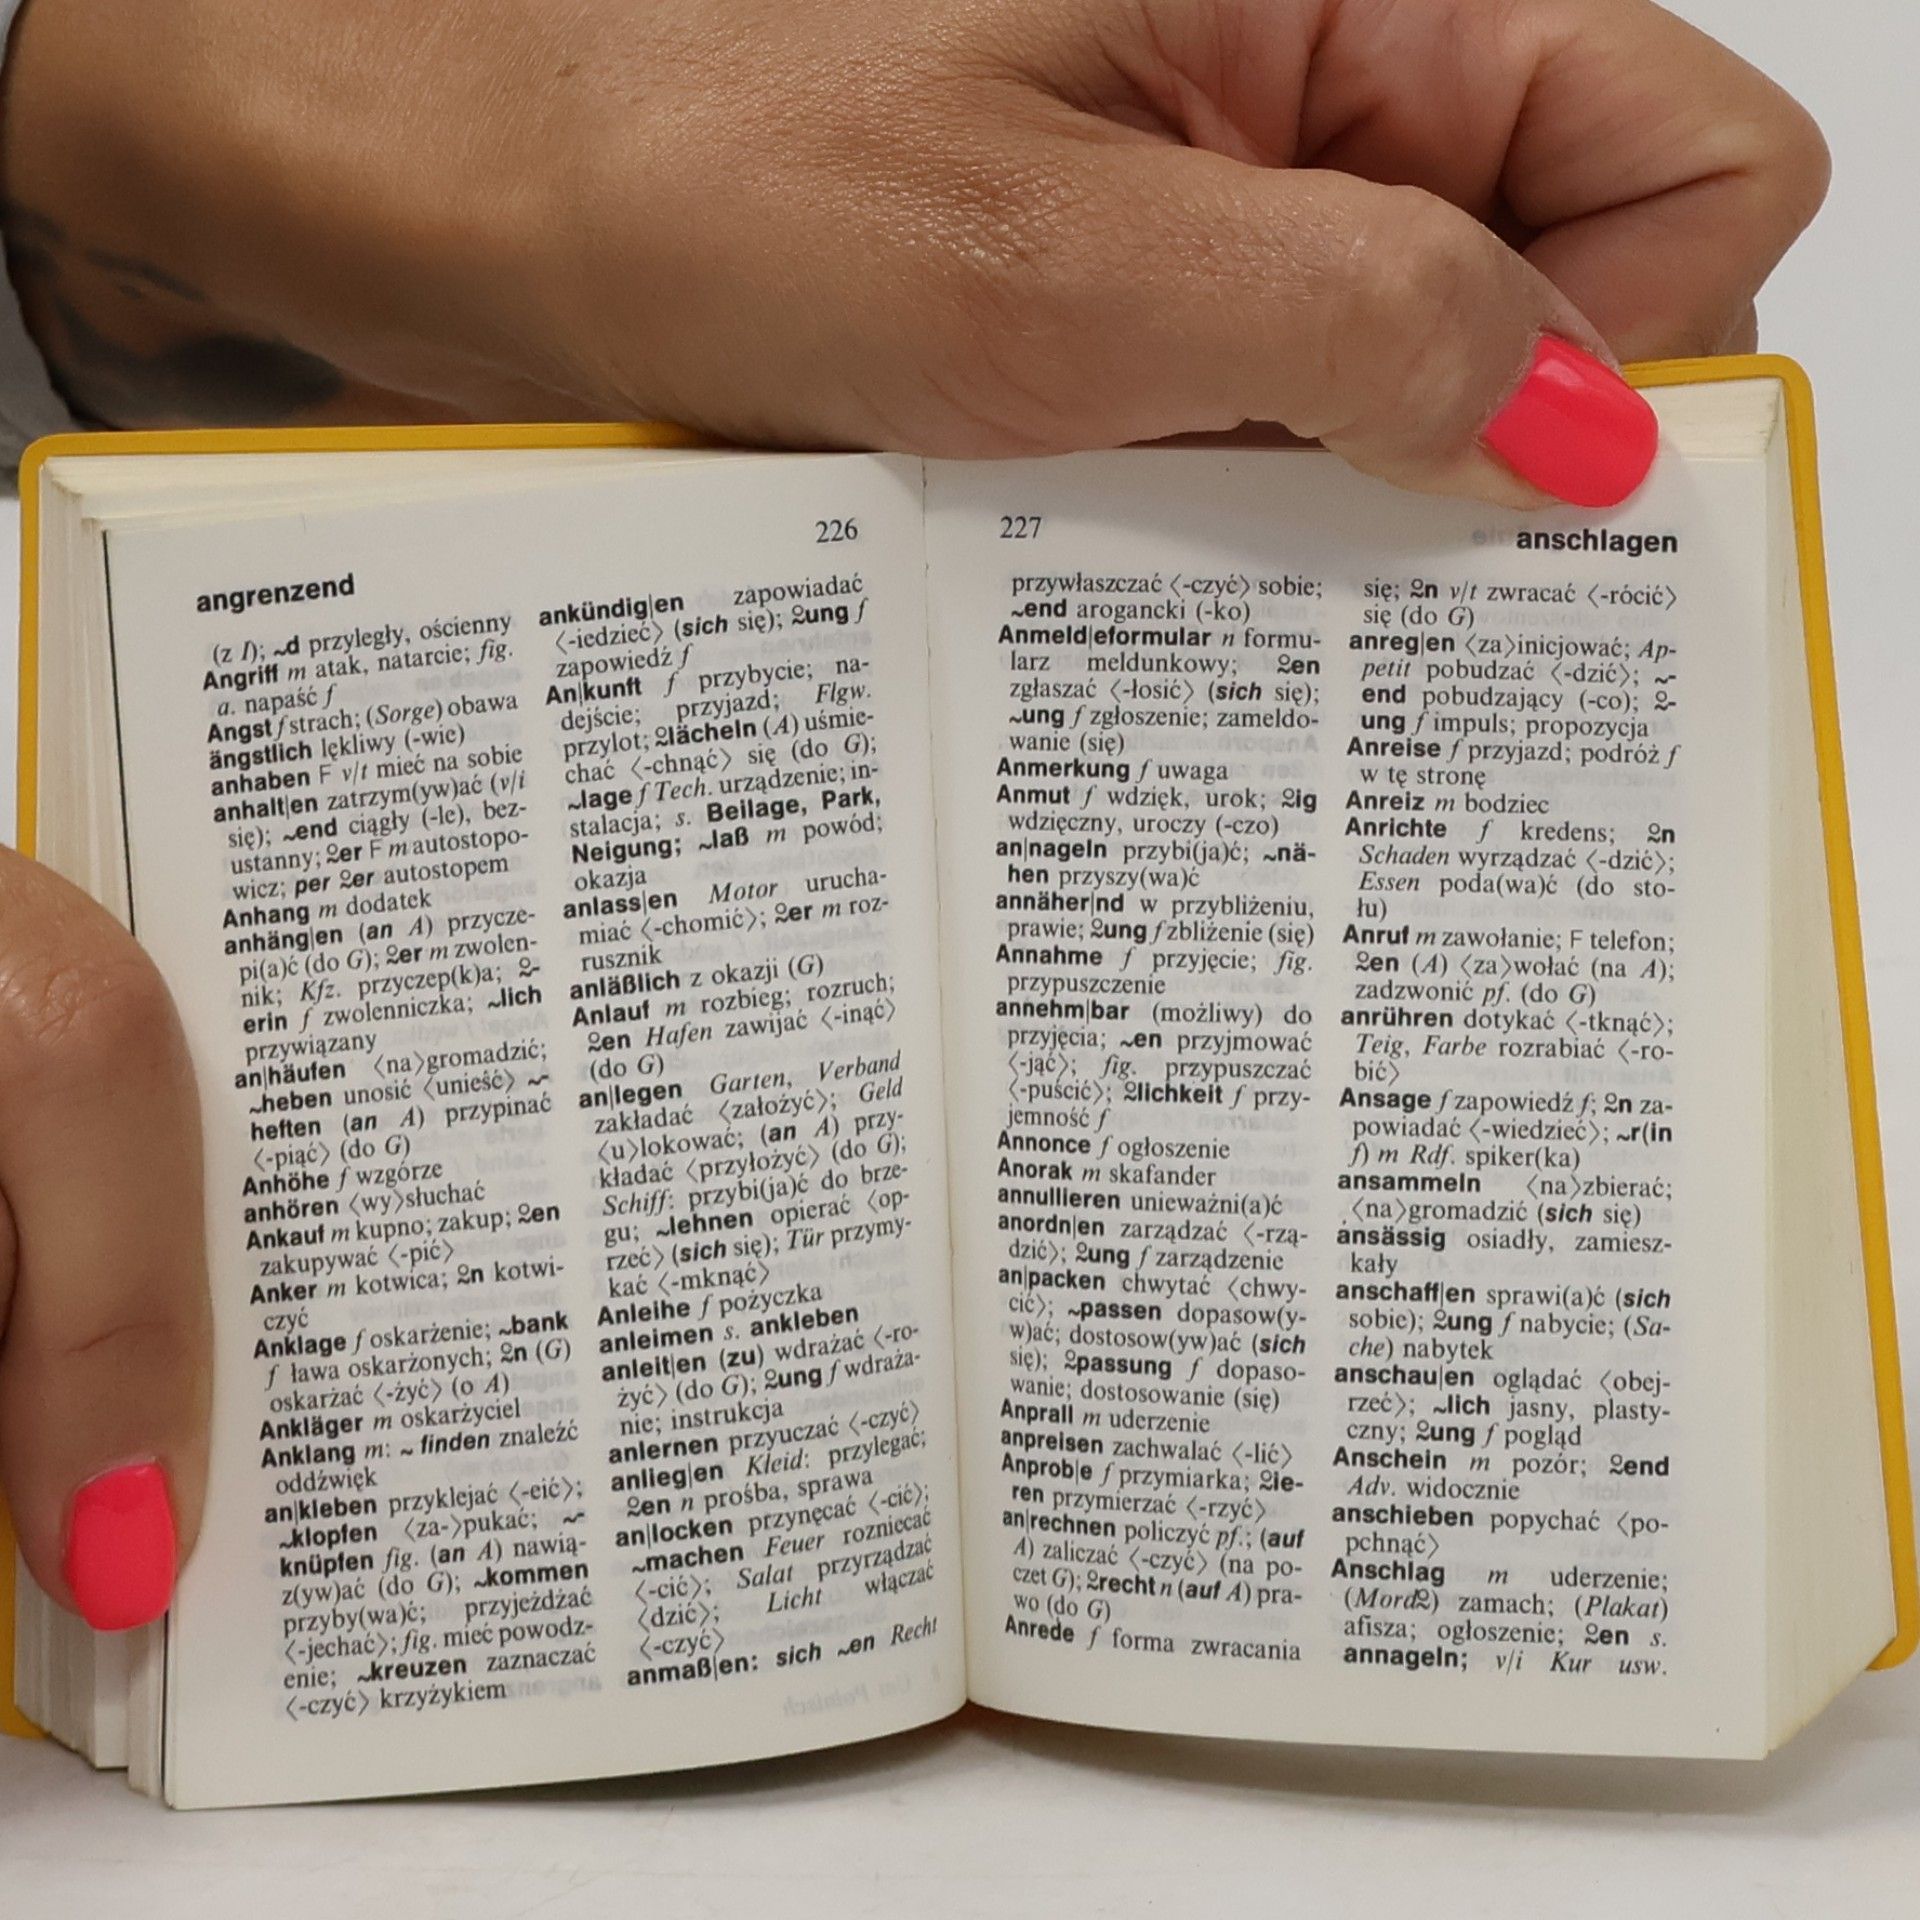 226
angrenzend
(z I); ~d przyległy, ościenny
Angriff m atak, natarcie; fig.
a. napaść f
Angst f strach; (Sorge) obawa
ängstlich lękliwy (-wie)
anhaben F v/t mieć na sobie
anhalt|en zatrzym(yw)ać (v/i
się); ~end ciągły (-le), bez-
ustanny; 2er F m autostopo-
wicz; per 2er autostopem
Anhang m dodatek
anhäng|en (an A) przycze-
pi(a)ć (do G); 2er m zwolen-
nik; Kfz. przyczep(k)a; 2-
erin f zwolenniczka; ~lich
przywiązany
an|häufen ⟨na⟩gromadzić;
~heben unosić ⟨unieść⟩ ~-
heften (an A) przypinać
⟨-piąć⟩ (do G)
Anhöhe f wzgórze
anhören ⟨wy⟩słuchać
Ankauf m kupno; zakup; 2en
zakupywać ⟨-pić⟩
Anker m kotwica; 2n kotwi-
czyć
Anklage f oskarżenie; ~bank
f ława oskarżonych; 2n (G)
oskarżać ⟨-żyć⟩ (o A)
Ankläger m oskarżyciel
Anklang m: ~ finden znaleźć
oddźwięk
an|kleben przyklejać ⟨-eić⟩;
~klopfen ⟨za-⟩pukać; ~-
knüpfen fig. (an A) nawią-
z(yw)ać (do G); ~kommen
przyby(wa)ć; przyjeżdżać
⟨-jechać⟩; fig. mieć powodz-
enie; ~kreuzen zaznaczać
⟨-czyć⟩ krzyżykiem
ankündig|en zapowiadać
⟨-iedzieć⟩ (sich się); 2ung f
zapowiedź f
An|kunft f przybycie; na-
dejście; przyjazd; Flgw.
przylot; 2lächeln (A) uśmie-
chać ⟨-chnąć⟩ się (do G);
~lage f Tech. urządzenie; in-
stalacja; s. Beilage, Park,
Neigung; ~laß m powód;
okazja
anlass|en Motor urucha-
miać ⟨-chomić⟩; 2er m roz-
rusznik
anläßlich z okazji (G)
Anlauf m rozbieg; rozruch;
2en Hafen zawijać ⟨-inąć⟩
(do G)
an|legen Garten, Verband
zakładać ⟨założyć⟩; Geld
⟨u⟩lokować; (an A) przy-
kładać ⟨przyłożyć⟩ (do G);
Schiff: przybi(ja)ć do brze-
gu; ~lehnen opierać ⟨op-
rzeć⟩ (sich się); Tür przymy-
kać ⟨-mknąć⟩
Anleihe f pożyczka
anleimen s. ankleben
anleit|en (zu) wdrażać ⟨-ro-
żyć⟩ (do G); 2ung f wdraża-
nie; instrukcja
anlernen przyuczać ⟨-czyć⟩
anlieg|en Kleid: przylegać;
2en n prośba, sprawa
an|locken przynęcać ⟨-cić⟩;
~machen Feuer rozniecać
⟨-cić⟩; Salat przyrządzać
⟨dzić⟩; Licht włączać
⟨-czyć⟩
anmaß|en: sich ~en Recht
227
anschlagen
przywłaszczać ⟨-czyć⟩ sobie;
~end arogancki (-ko)
Anmeld|eformular n formu-
larz meldunkowy; 2en
zgłaszać ⟨-łosić⟩ (sich się);
~ung f zgłoszenie; zameldo-
wanie (się)
Anmerkung f uwaga
Anmut f wdzięk, urok; 2ig
wdzięczny, uroczy (-czo)
an|nageln przybi(ja)ć; ~nä-
hen przyszy(wa)ć
annäher|nd w przybliżeniu,
prawie; 2ung f zbliżenie (się)
Annahme f przyjęcie; fig.
przypuszczenie
annehm|bar (możliwy) do
przyjęcia; ~en przyjmować
⟨-jąć⟩; fig. przypuszczać
⟨-puścić⟩; 2lichkeit f przy-
jemność f
Annonce f ogłoszenie
Anorak m skafander
annullieren unieważni(a)ć
anordn|en zarządzać ⟨-rzą-
dzić⟩; 2ung f zarządzenie
an|packen chwytać ⟨chwy-
cić⟩; ~passen dopasow(y-
w)ać; dostosow(yw)ać (sich
się); 2passung f dopaso-
wanie; dostosowanie (się)
Anprall m uderzenie
anpreisen zachwalać ⟨-lić⟩
Anprob|e f przymiarka; 2ie-
ren przymierzać ⟨-rzyć⟩
an|rechnen policzyć pf.; (auf
A) zaliczać ⟨-czyć⟩ (na po-
czet G); 2recht n (auf A) pra-
wo (do G)
Anrede f forma zwracania
się; 2n v/t zwracać ⟨-rócić⟩
się (do G)
anreg|en ⟨za⟩inicjować; Ap-
petit pobudzać ⟨-dzić⟩; ~-
end pobudzający (-co); 2-
ung f impuls; propozycja
Anreise f przyjazd; podróż f
w tę stronę
Anreiz m bodziec
Anrichte f kredens; 2n
Schaden wyrządzać ⟨-dzić⟩;
Essen poda(wa)ć (do sto-
łu)
Anruf m zawołanie; F telefon;
2en (A) ⟨za⟩wołać (na A);
zadzwonić pf. (do G)
anrühren dotykać ⟨-tknąć⟩;
Teig, Farbe rozrabiać ⟨-ro-
bić⟩
Ansage f zapowiedź f; 2n za-
powiadać ⟨-wiedzieć⟩; ~r(in
f) m Rdf. spiker(ka)
ansammeln ⟨na⟩zbierać;
⟨na⟩gromadzić (sich się)
ansässig osiadły, zamiesz-
kały
anschaff|en sprawi(a)ć (sich
sobie); 2ung f nabycie; (Sa-
che) nabytek
anschau|en oglądać ⟨obej-
rzeć⟩; ~lich jasny, plasty-
czny; 2ung f pogląd
Anschein m pozór; 2end
Adv. widocznie
anschieben popychać ⟨po-
pchnąć⟩
Anschlag m uderzenie;
(Mord2) zamach; (Plakat)
afisza; ogłoszenie; 2en s.
annageln; v/i Kur usw.